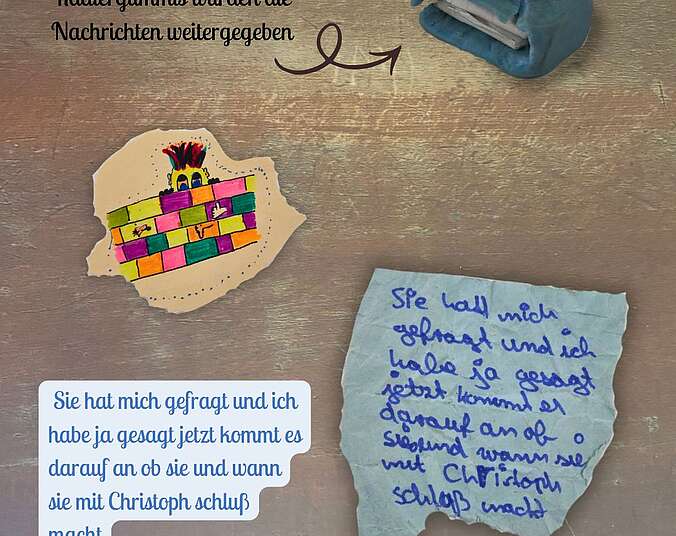 Radiergummis wurden die
Nachrichten weitergegeben
Sie hat mich gefragt und ich
habe ja gesagt jetzt kommt es
darauf an ob sie und wann
sie mit Christoph schluß
macht
Sie hatt mich
gefragt und ich
habe ja gesagt
jetzt kommt es
darauf an ob
sie und wann sie
mit Christoph
schluß macht